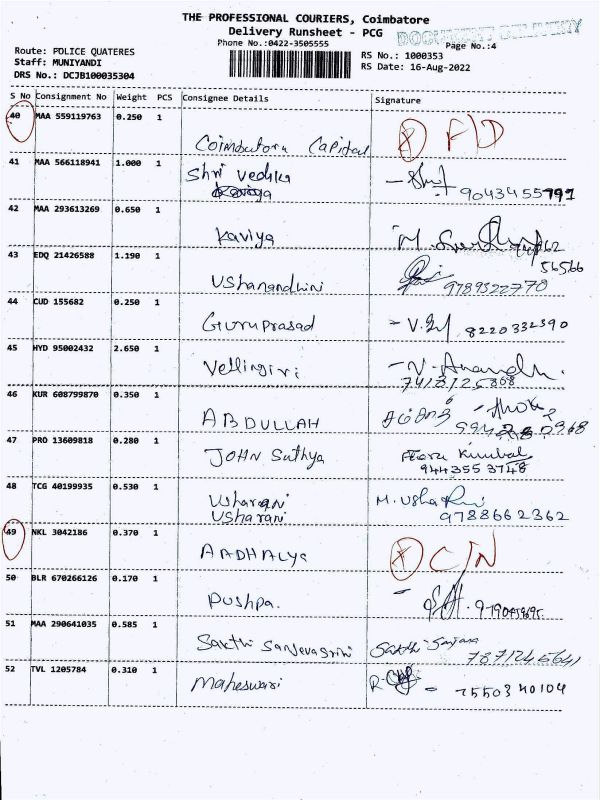 THE PROFESSIONAL COURIERS, Coimbatore
Delivery Runsheet - PCG
DOCUMENT DELIVERY
Phone No.:0422-3505555
Page No.:4
Route: POLICE QUATERES
RS No.: 1000353
Staff: MUNIYANDI
RS Date: 16-Aug-2022
DRS No.: DCJB100035304
S No Consignment No Weight PCS Consignee Details Signature
40 MAA 559119763 0.250 1
Coimbatore Capital F/D
41 MAA 566118941 1.000 1
Shri Vedika
9043455791
42 MAA 293613269 0.650 1
Kaviya
43 EDQ 21426588 1.190 1
56566
Ushanandhini 9789322770
44 CUD 155682 0.250 1
Guruprasad - V. 8220332390
45 HYD 95002432 2.650 1
Vellingiri - V. Anandh.
46 KUR 608799870 0.350 1
ABDULLAH
47 PRO 13609818 0.280 1
JOHN Sathya
9443553748
48 TCG 40199935 0.530 1
Usharani M. Usha Rani
Usharani 9788662362
49 NKL 3042186 0.370 1
AADHALYA C/N
50 BLR 670266126 0.170 1
Pushpa.
51 MAA 290641035 0.585 1
Sakthi Sanjevasrini Sakthi
7871245641
52 TVL 1205784 0.310 1
Maheswari R. - 7550340104